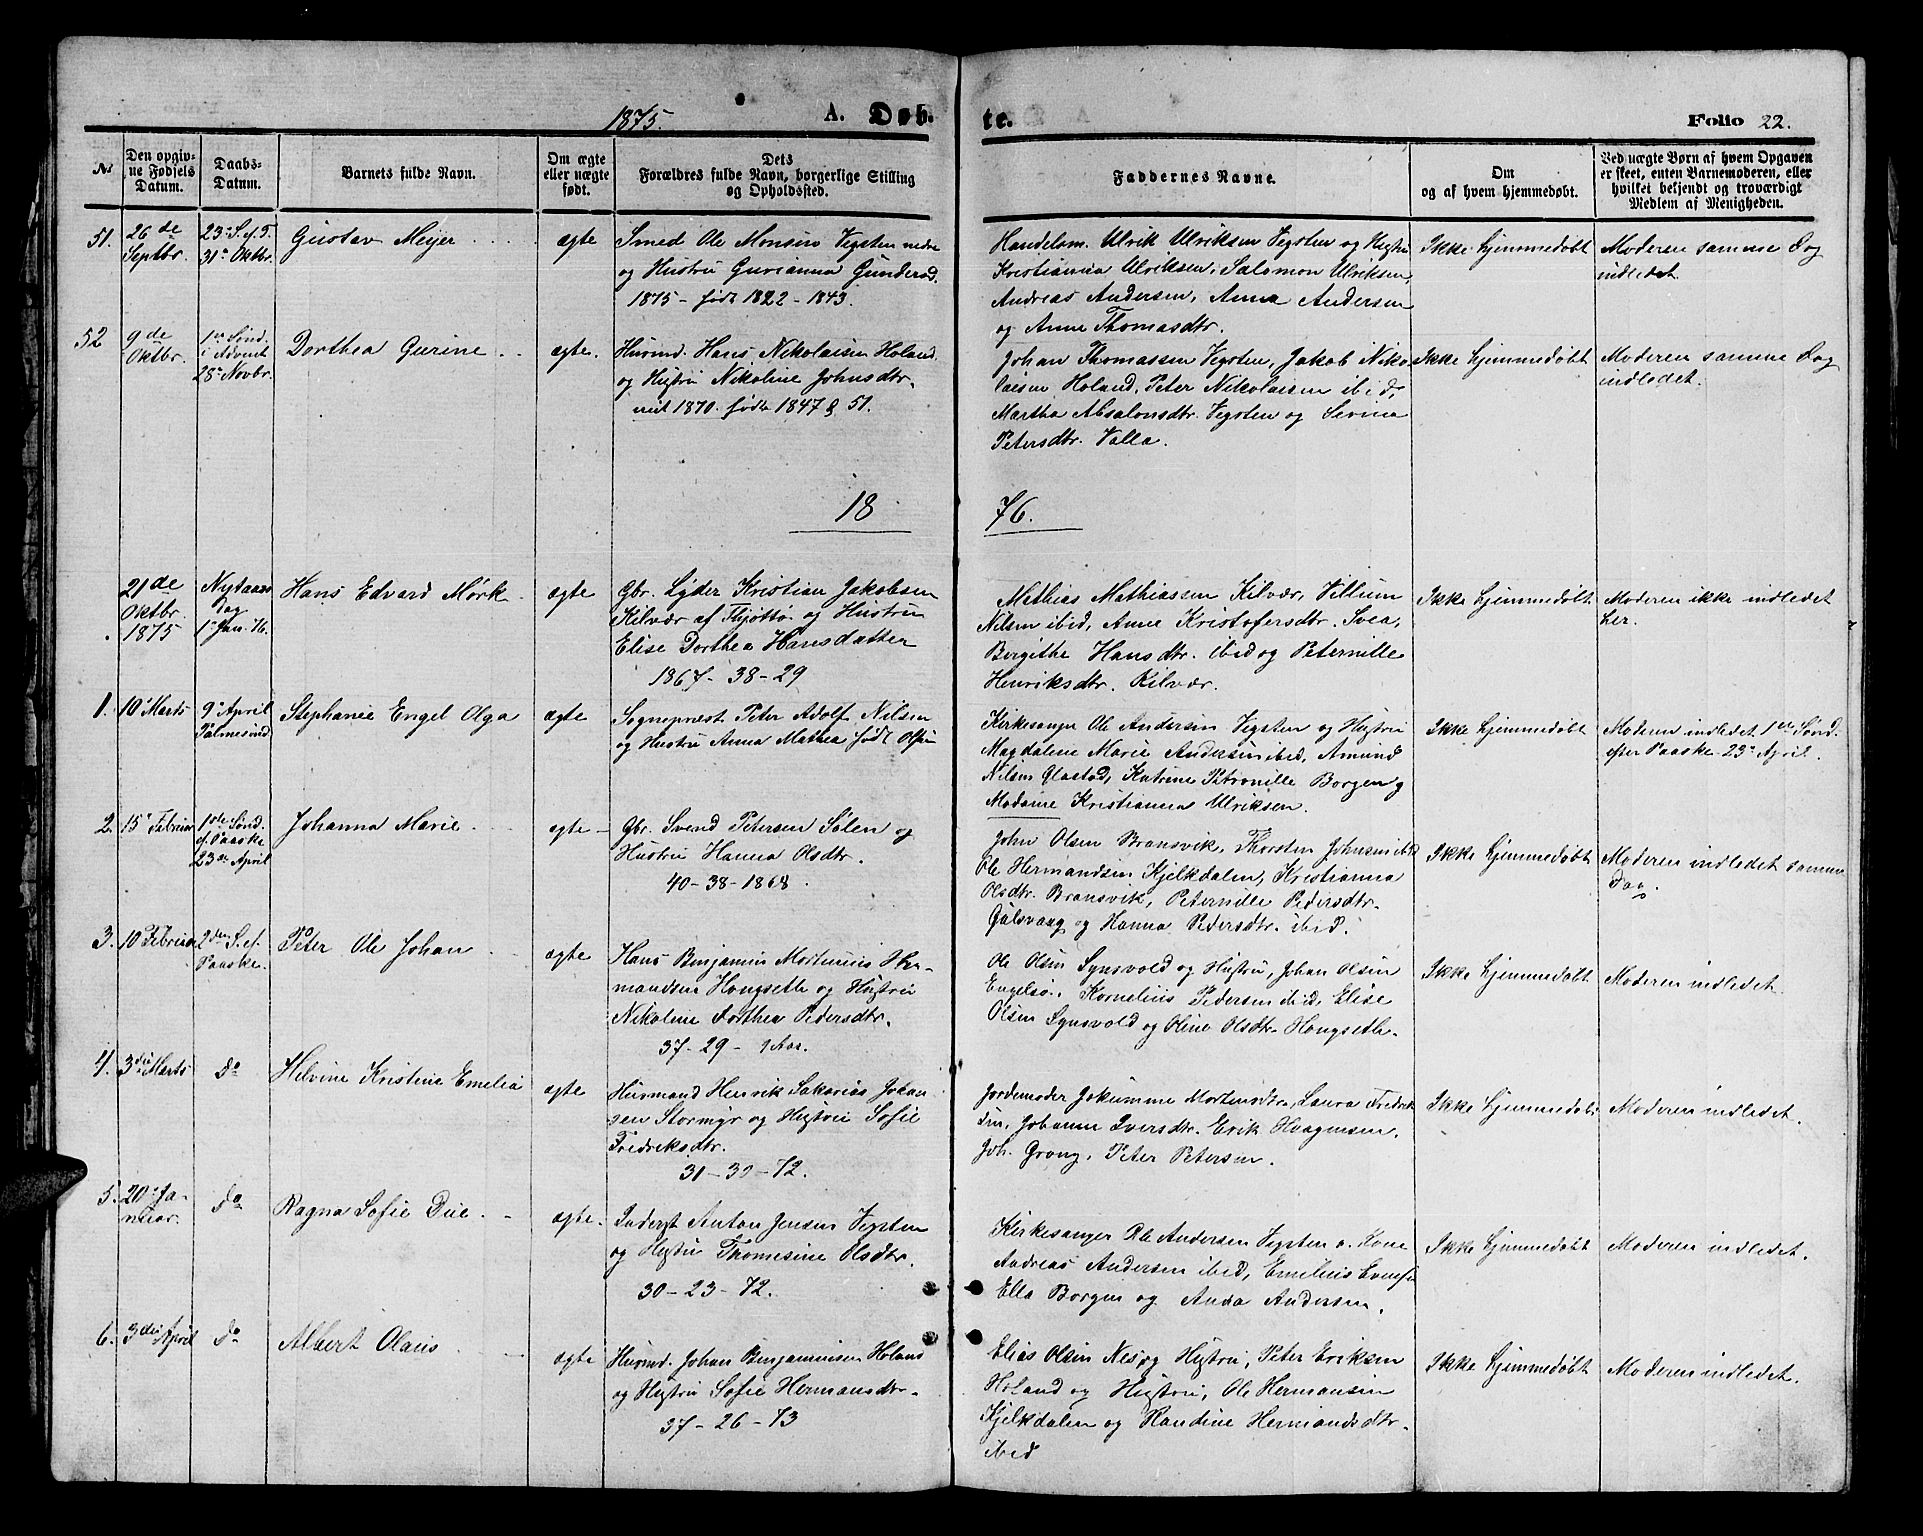 1875. A. Døb. te. Folio 22.
No
Den opgiv-
ne Fødsels
Datum.
Daabs-
Datum.
Barnets fulde Navn.
Om ægte
eller uægte
født.
Dets
Forældres fulde Navn, borgerlige Stilling
og Opholdssted.
Faddernes Navne.
Om
og af hvem hjemmedøbt.
Ved uægte Børn af hvem Opgaven
er skeet, enten Barnemoderen, eller
hvilket bekjendt og troværdigt
Medlem af Menigheden.
51.
26de
Septbr.
23. S. e. T.
31. Oktbr.
Gustav Meyer
ægte
Smed Ole Monsen Vegsten nedre
og Hustru Gurianna Gundersd.
1875 - født 1822 - 1843.
Handelsm. Ulrik Ulriksen Vegsten og Hustru
Kristianna Ulriksen, Salomon Ulriksen,
Andreas Andersen, Anna Andersen
og Anne Thomasdtr.
Ikke hjemmedøbt
Moderen samme Dag
indledet.
52
9de
Oktbr.
1ste Sønd.
i Advent
28. Novbr.
Dorthea Gurine
ægte.
Husmd. Hans Nikolaisen Holand
og Hustru Nikoline Johnsdtr.
viet 1870. født 1847 & 51.
Johan Thomassen Vegsten, Jakob Niko-
laisen Holand, Peter Nikolaisen ibid,
Martha Absalonsdtr. Vegsten og Sevina
Petersdtr. Valla.
Ikke hjemmedøbt
Moderen samme Dag
indledet.
18 76.
21de
Oktbr.
1875
Nytaars
dag
1. Jan. 76.
Hans Edvard Mørk
ægte
Gbr. Lyder Kristian Jakobsen
Kilvær af Thjøttø og Hustru
Elise Dorthea Hansdatter
1867 - 38 - 29
Mathias Mathiassen Kilvær, Villum
Nilsen ibid, Anne Kristofersdtr. Svea,
Bergithe Hansdtr. ibid og Peternille
Henriksdtr. Kilvær.
Ikke hjemmedøbt
Moderen ikke indledet
her.
1.
10. Marts
9. April
Palmesønd
Stephanie Engel Olga
ægte
Sognepræst Peter Adolf Nilsen
og Hustru Anna Mathea født Olsen
Kirkesanger Ole Andersen Vegsten og Hustru
Magdalene Marie Andersen ibid, Amund
Nilsen Glastad, Katrine Petronille Borgen og
Madame Kristianna Ulriksen.
Ikke hjemmedøbt
Moderen indledet 1ste Sønd.
efter Paaske 23. April.
2.
15. Februar
1ste Sønd.
e. Paaske
23de April
Johanna Marie
ægte
Gbr. Svend Petersen Sølen og
Hustru Hanna Olsdtr.
40 - 38 - 1868.
John Olsen Bransvik, Thorsten Johnsen ibid
Ole Hermandsen Kjelkdalen, Kristianna
Olsdtr. Bransvik, Peternille Pedersdtr.
Galsvaag og Hanna Pedersdtr. ibid.
Ikke hjemmedøbt
Moderen indledet samme
Dag.
3.
10 Februar
2den S. ef.
Paaske.
Peter Ole Johan
ægte
Hans Benjamin Martinus Her-
mandsen Hongseth og Hustru
Nikoline Dorthea Pedersdtr.
37 - 29 - 9 Aar.
Ole Olsen Synsvold og Hustru, Johan Olsen
Engelsø, Kornelius Pedersen ibid, Elise
Olsen Synsvold og Oline Olsdtr. Hongseth.
Ikke hjemmedøbt
Moderen indledet.
4.
3die Marts
Do
Helvine Kristine Emelia
ægte
Husmand Henrik Sakarias Johan-
sen Stormyr og Hustru Sofie
Fredriksdtr.
31 - 30 - 72.
Jordemoder Jokumine Mortensdtr, Laura Fredrik-
sen, Johanne Iversdtr. Erik Haagensen.
Joh. Grong, Peter Petersen.
Ikke hjemmedøbt
Moderen indledet.
5.
20. Ja-
nuar.
Do
Ragna Sofie Due
ægte.
Anton Jensen Vegsten
og Hustru Thomesine Olsdtr.
30 - 23 - 72.
Kirkesanger Ole Andersen Vegsten o. Kone
Andreas Andersen ibid, Emelius Evensen
Ella Borgen og Anna Andersen.
Ikke hjemmedøbt
Moderen indledet.
6.
3die April
Do
Albert Olaus
ægte
Husmd. Johan Benjaminsen Holand
og Hustru Sofie Hermansdtr.
37 - 26 - 73
Elias Olsen Nes og Hustru, Peter Eriksen
Holand og Hustru, Ole Hermansen
Kjelkdalen og Randine Hermandsdtr.
ibid
Ikke hjemmedøbt
Moderen indledet.